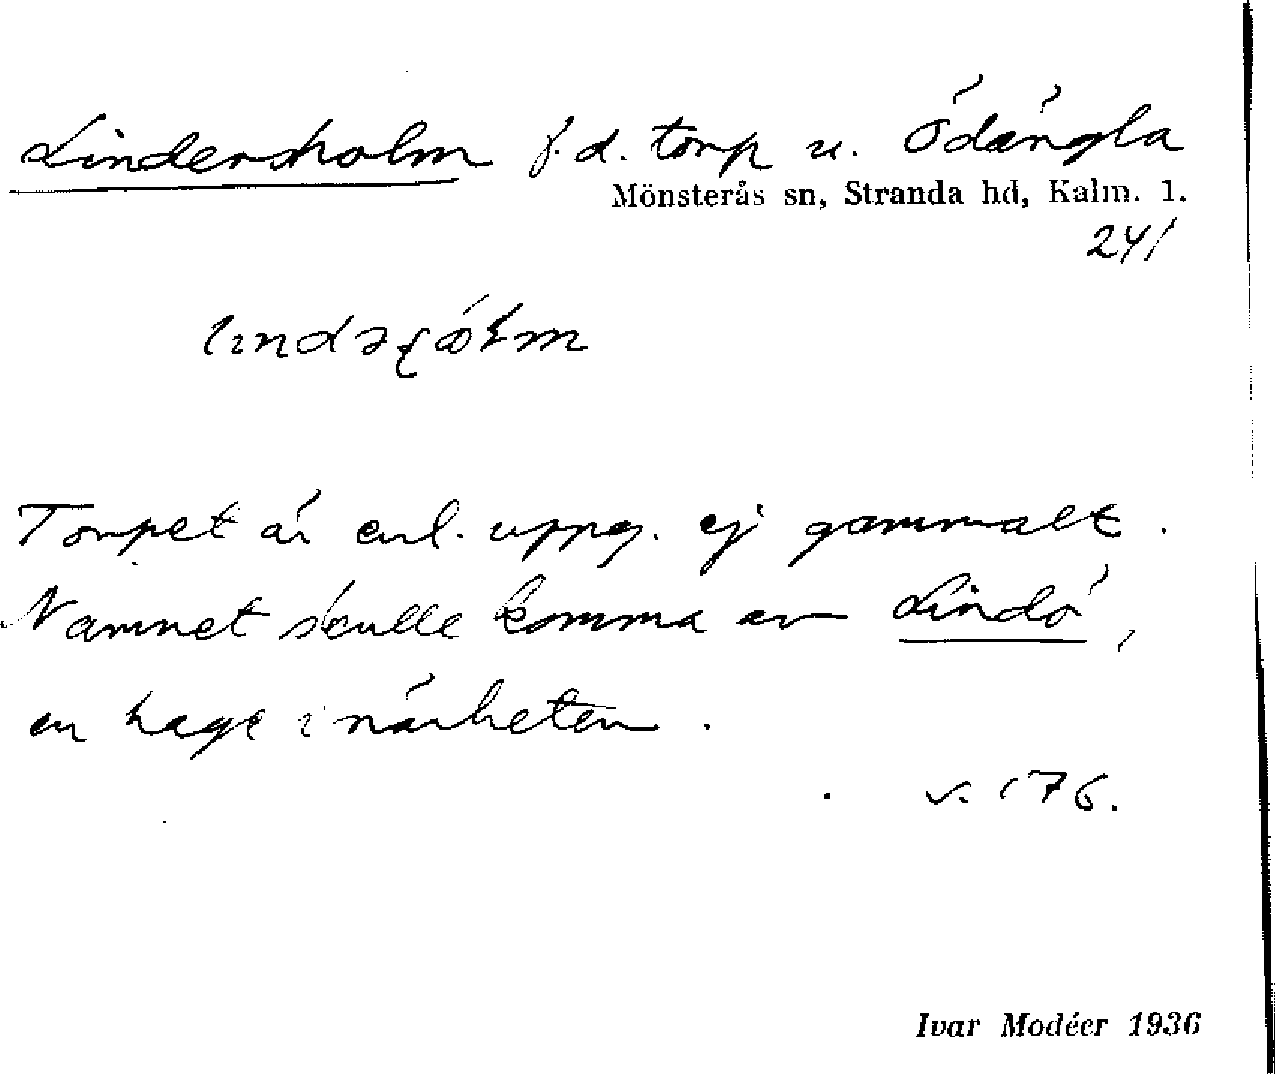 Lindersholm f.d. torp u. Ödängla
Mönsterås sn, Stranda hd, Kalm. l.
241
Torpet är enl. uppg. ej gammalt.
Namnet skulle komma av Lindö,
en hage i närheten.
v. 176.
Ivar Modéer 1936